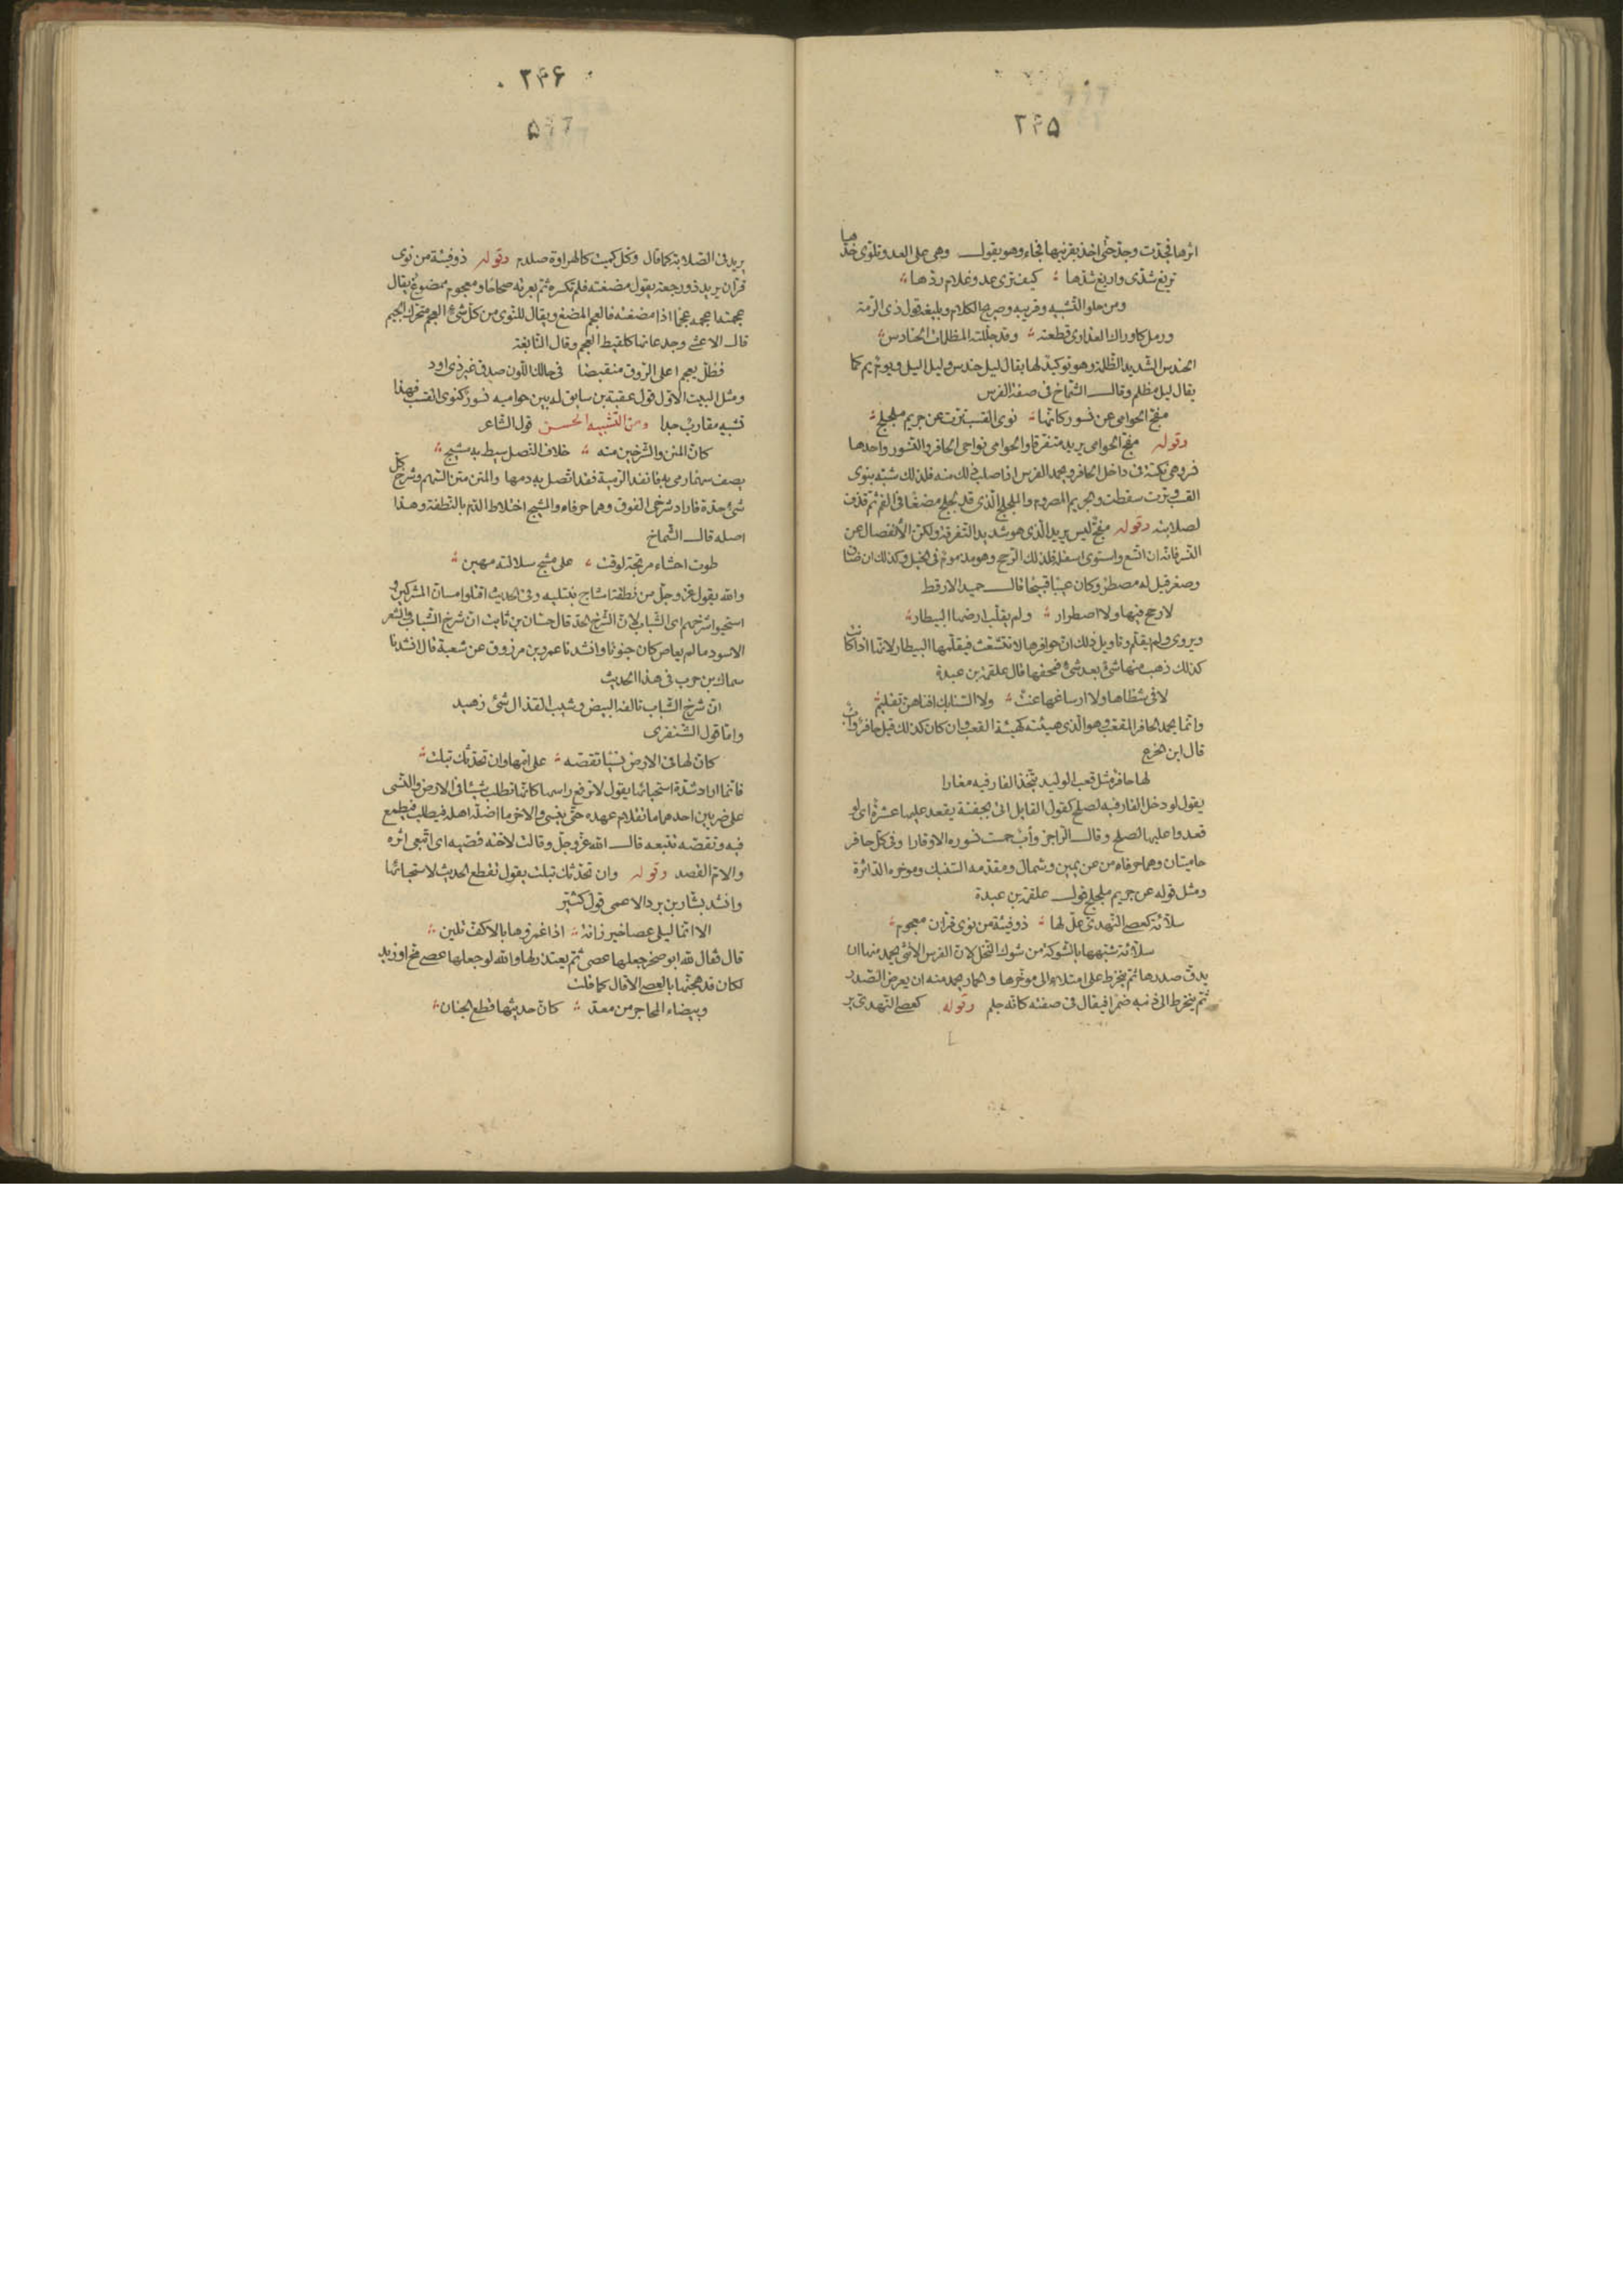 ٢٤۵
اثرها فجدت وجد حتى اخذ بقرنيها فجاء وهو يقول وهى على العدو تلوى خدها
تريغ شدى واريغ شدها كيف ترى عدو غلام ردها
ومن حلو التشبيه وقريبه وصريح الكلام وبليغه قول ذى الرمة
ورمل كاوراك العذارى قطعته وقد جللته المظلمات الحنادس
الحندس الشديد الظلمة وهو توكيد لها يقال ليل حندس وليل اليل ويوم يم كما
يقال ليل مظلم وقال الشماخ فى صفة الفرس
مفج الحوامى عن نسور كانها نوى القسب ترت عن جريم ملجلج
وقوله مفج الحوامى يريد متفرقا والحوامى نواحى الحافر والنسور واحدها
نسر وهى نكتة فى داخل الحافر ويحمد الفرس اذا صلب ذلك منه فلذلك شبه بنوى
القسب وترت سقطت والجريم المصروم والملجلج الذى قد لجلج مضغا فى الفم ثم قذف
لصلابته وقوله مفج ليس يريد الذى هو شديد التفرقة ولكن الانفصال عن
النسر فانه ان اتسع واستوى اسفله فذلك الرحح وهو مذموم فى الخيل وكذلك ان ضاق
وصغر قيل له مصطر وكان عيبا قبيحا قال حميد الارقط
لا رحح فيها ولا اصطرار ولم يقلب ارضها البيطار
ويروى ولم يقلم وتاويل ذلك ان حوافرها لا تتشعث فيقلمها البيطار لانها اذا كانت
كذلك ذهب منها شىء بعد شىء فمحقها قال علقمة بن عبدة
لا فى شظاها ولا ارساغها عنت ولا السنابك افناهن تقليم
وانما يحمد الحافر المقعب وهو الذى هيئته كهيئة القعب وان كان كذلك قيل حافر وأب
قال ابن الخرع
لها حافر مثل قعب الوليد يتخذ الفار فيه مغارا
يقول لو دخل الفار فيه لصلح كقول القايل اتى بجفنة يقعد عليها عشرة اى لو
قعدوا عليها لصلح وقال الراجز وأب حمت نسوره الاوقارا وفى كل حافر
حاميتان وهما حرفاه من عن يمين وشمال ومقدمه السنبك ومؤخره الدائرة
ومثل قوله عن جريم ملجلج قول علقمة بن عبدة
سلاءة كعصى النهدى غل لها ذو فيئة من نوى قران معجوم
سلاءة شبهها بالشوكة من شوك النخل لان الفرس الانثى يحمد منها ان
يدق صدرها ثم ينخرط على امتلاء الى مؤخرها والحمار يحمد منه ان يعرض الصدر
ثم ينخرط الى ذنبه ضمرا فيقال فى صفته كانه جلم وقوله كعصى النهدى ير
٢٤۶
يريد فى الصلابة كما قال وكل كميت كالهراوة صلدم وقوله ذو فيئة من نوى
قران يريد ذو رجعة يقول مضغته فلم تكسره ثم بعرته صحاحا ومعجوم ممضوغ يقال
عجمته اعجمه عجما اذا مضغته فالعجم المضغ ويقال للنوى من كل شىء العجم متحرك الجيم
قال الاعشى وجذعانها كلقيط العجم وقال النابغة
فظل يعجم اعلى الروق منقبضا فى حالك اللون صدق غير ذى اود
ومثل البيت الاول قول عقبة بن سابق له بين حواميه نسور كنوى القسب فهذا
تشبيه مقارب جدا ومن التشبيه الحسن قول الشاعر
كان المتن والشرخين منه خلاف النصل سيط به مشيج
يصف سهما رمى به فانفذ الرمية فقد اتصل به دمها والمتن متن السهم وشرخ كل
شىء حده فاراد شرخى الفوق وهما حرفاه والمشيج اختلاط الدم بالنطفة وهذا
اصله قال الشماخ
طوت احشاء مرتجة لوقت على مشج سلالته مهين
والله يقول عز وجل من نطفة امشاج نبتليه وفى الحديث اقتلوا مسان المشركين و
استحيوا شرخهم اى الشباب لان الشرخ الحد قال حسان بن ثابت ان شرخ الشباب والشعر
الاسود ما لم يعاص كان جنونا وانشدنا عمرو بن مرزوق عن شعبة قال انشدنا
سماك بن حرب فى هذا الحديث
ان شرخ الشباب تالفه البيض وشيب القذال شىء زهيد
واما قول الشنفرى
كان لها فى الارض نسيا تقصه على امها وان تحدثك تبلت
فانما اراد شدة استحيائها يقول لا ترفع راسها كانها تطلب شيئا فى الارض والنسى
على ضربين احدهما ما تقادم عهده حتى ينسى والاخر ما اضله اهله فيطلب فيطمع
فيه وتقصه تتبعه قال الله عز وجل وقالت لاخته قصيه اى اتبعى اثره
والام القصد وقوله وان تحدثك تبلت يقول تقطع الحديث لاستحيائها
وانشد بشار بن برد الاعمى قول كثير
الا انما ليلى عصا خيزرانة اذا غمزوها بالاكف تلين
قال فقال لله ابو صخر جعلها عصى ثم يعتذر لها والله لو جعلها عصى مخ او زبد
لكان قد هجنها بالعصى الا قال كما قلت
وبيضاء المحاجر من معد كان حديثها قطع الجنان